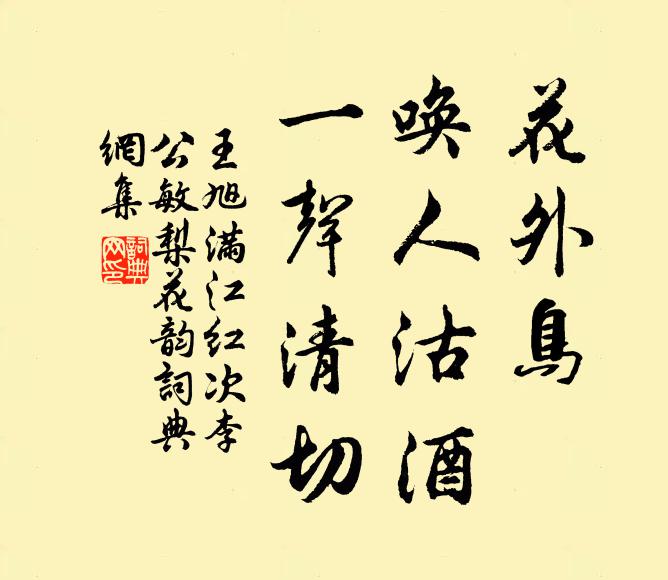 花外鳥
喚人沽酒
一聲清切
王旭滿江红次李
公敏梨花韵詞典
網集
詞典
网印